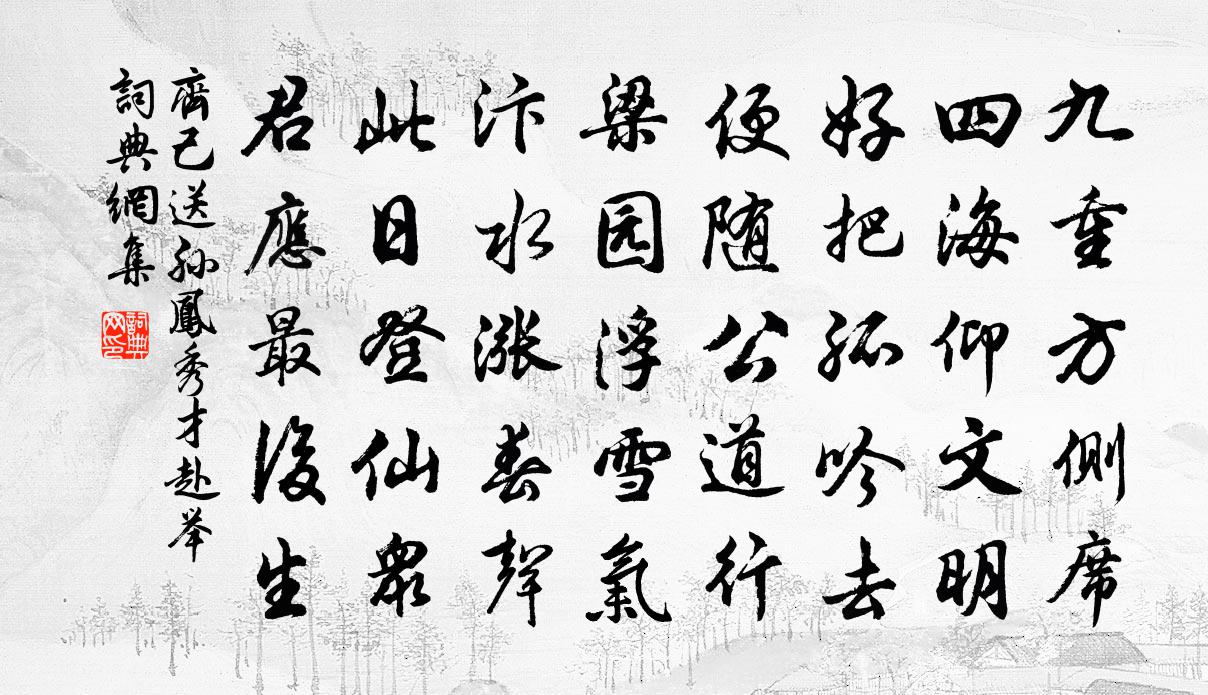 九重方側席
四海仰文明
好把孤吟去
便随公道行
梁园浮雪氣
汴水漲春聲
此日登仙衆
君應最後生
齊己送孫鳳秀才赴举
詞典網集
詞典网印